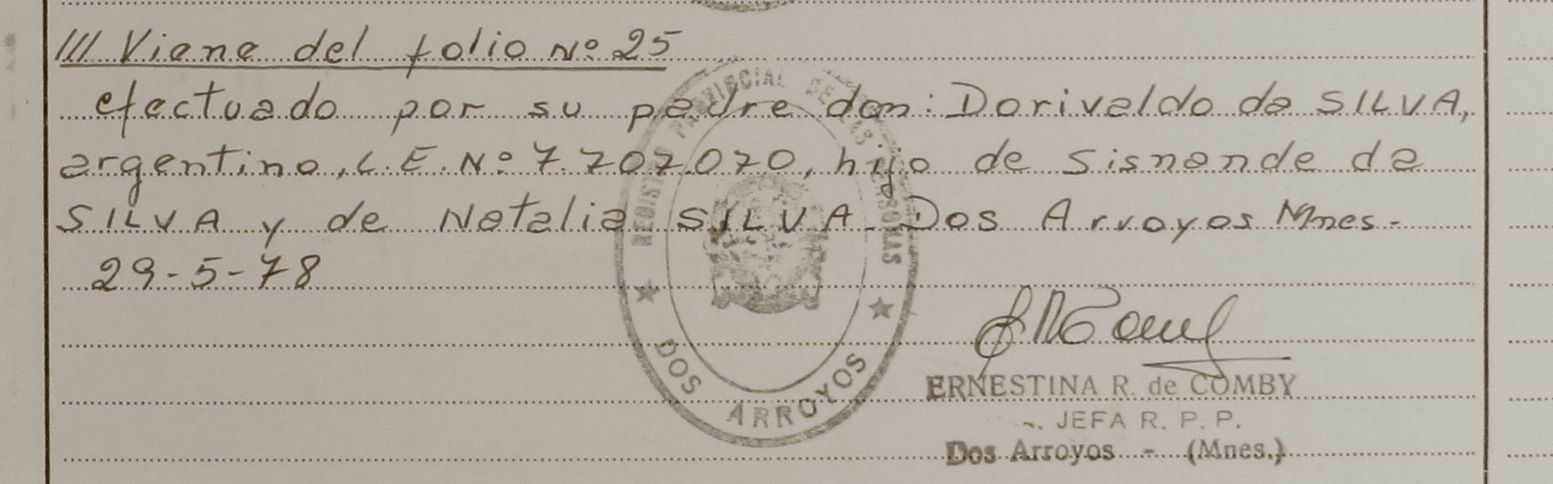 /// Viene del folio Nº 25
efectuado por su padre don: Dorivaldo da SILVA,
argentino, L.E. Nº 7.707.070, hijo de Sisnande da
SILVA y de Natalia SILVA. Dos Arroyos Mnes.-
29-5-78
REGISTRO PROVINCIAL DE LAS PERSONAS
DOS ARROYOS
ERNESTINA R. de COMBY
JEFA R. P. P.
Dos Arroyos - (Mnes.)